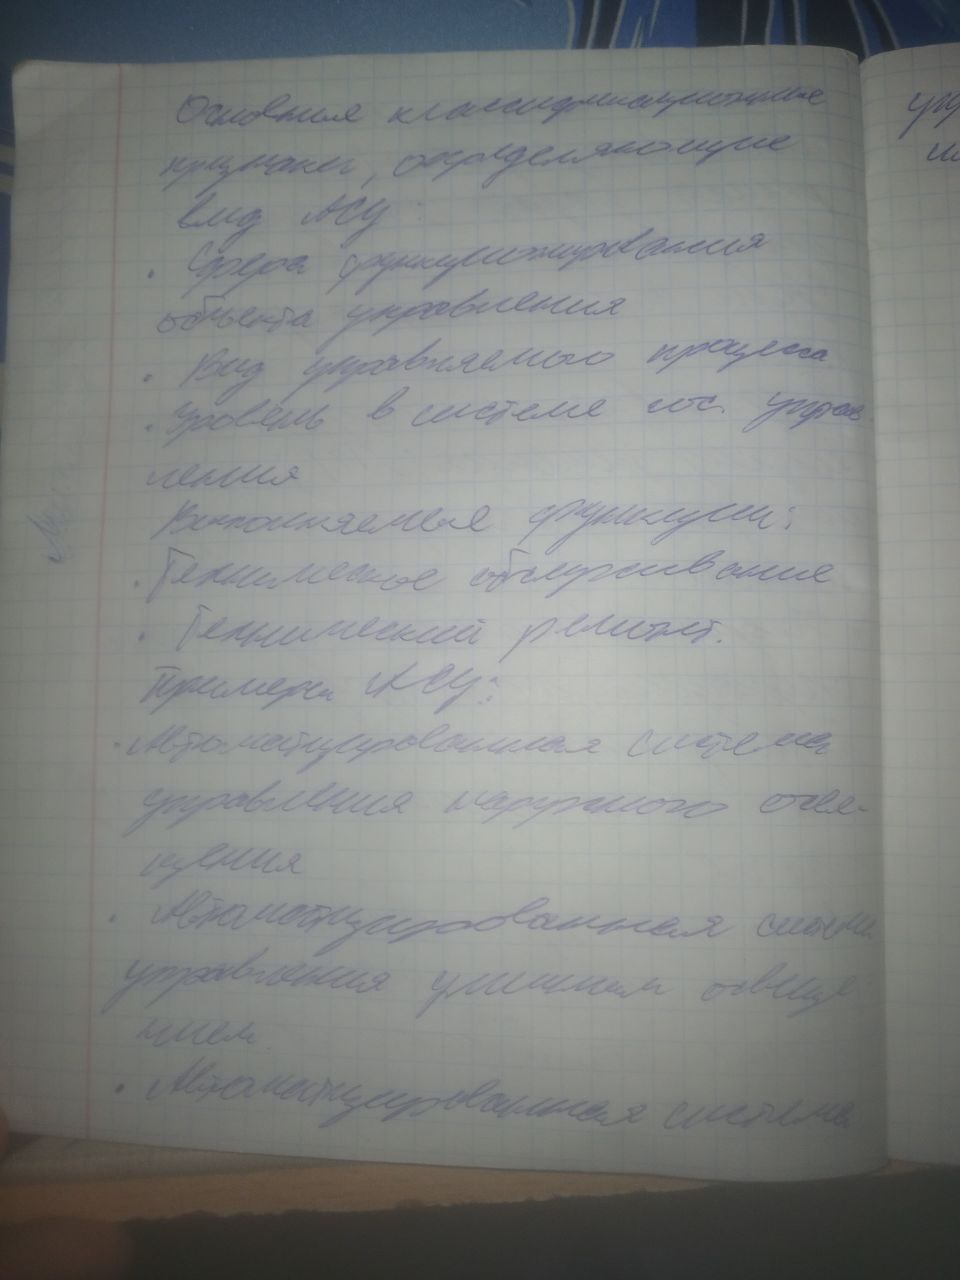 Основные классификационные
признаки, определяющие
вид АСУ:
· Сфера функционирования
объекта управления
· Вид управляемого процесса
· Уровень в системе гос. управ-
ления
Выполняемые функции:
· Техническое обслуживание
· Технический ремонт.
Примеры АСУ:
· Автоматизированная система
управления наружного осве-
щения
· Автоматизированная система
управления уличным освеще-
нием
· Автоматизированная система